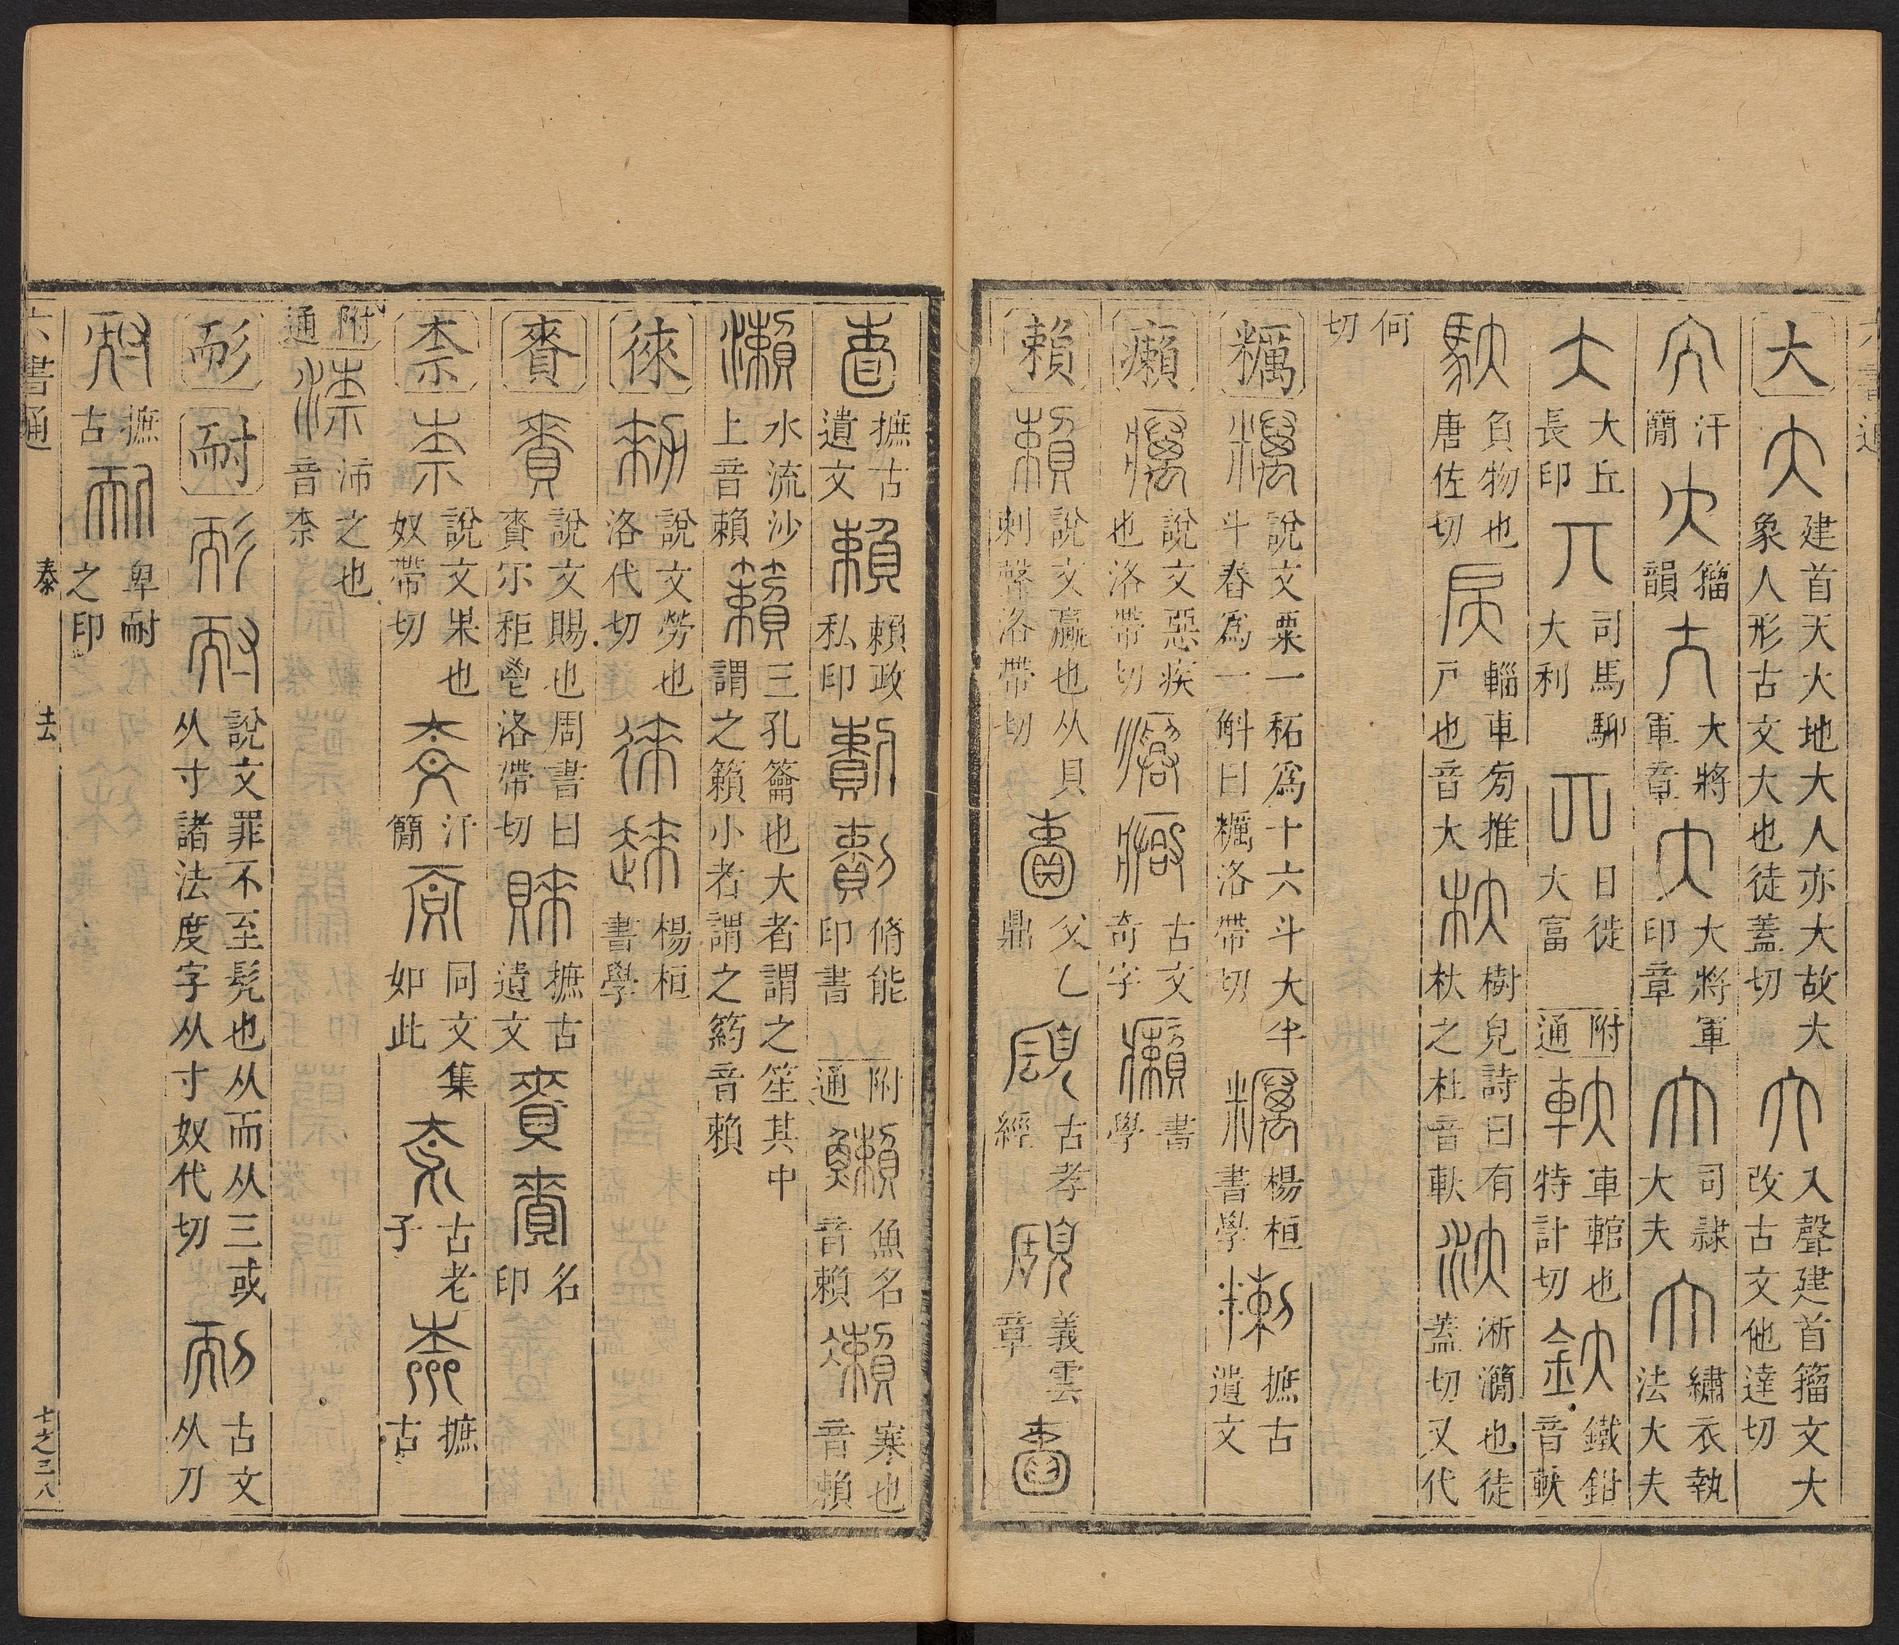 大 大 建首天大地大人亦大故大象人形古文大也徒蓋切 入聲建首籀文大改古文他達切
汗簡 籀韻 大將軍章 大將軍印章 司隷大夫 繡衣執法大夫
大丘長印 司馬聊大利 日徙大富 附通 軑 車輨也特計切 釱 鐵鉗音軑
馱 負物也唐佐切 輜車旁推戶也音大 杕 樹皃詩曰有杕之杜音軑 汏 淅灡也徒蓋切又代
何切
糲 說文粟一䄷爲十六斗大半斗舂爲一斛曰糲洛帶切 楊桓書學 摭古遺文
癩 說文惡疾也洛帶切 古文奇字 書學
賴 說文贏也从貝剌聲洛帶切 父乙鼎 古孝經 義雲章
摭古遺文 賴政私印 脩能印書 附通 魚名音賴 寒也音賴
瀨 水流沙上音賴 籟 三孔籥也大者謂之笙其中謂之籟小者謂之箹音賴
徠 說文勞也洛代切 楊桓書學
賚 說文賜也周書曰賚尓秬鬯洛帶切 摭古遺文 名印
柰 說文果也奴帶切 汗簡 同文集如此 古老子 摭古
附通 渿 沛之也音柰
耏 耐 說文罪不至髡也从而从三或从寸諸法度字从寸奴代切 古文从刀
摭古 卑耐之印
六書通 泰 去 七之三八